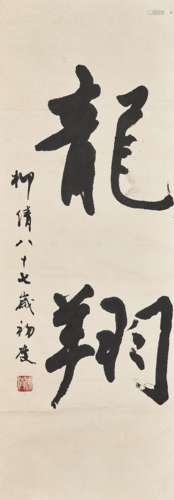 龍翔
柳倩八十七歲初度